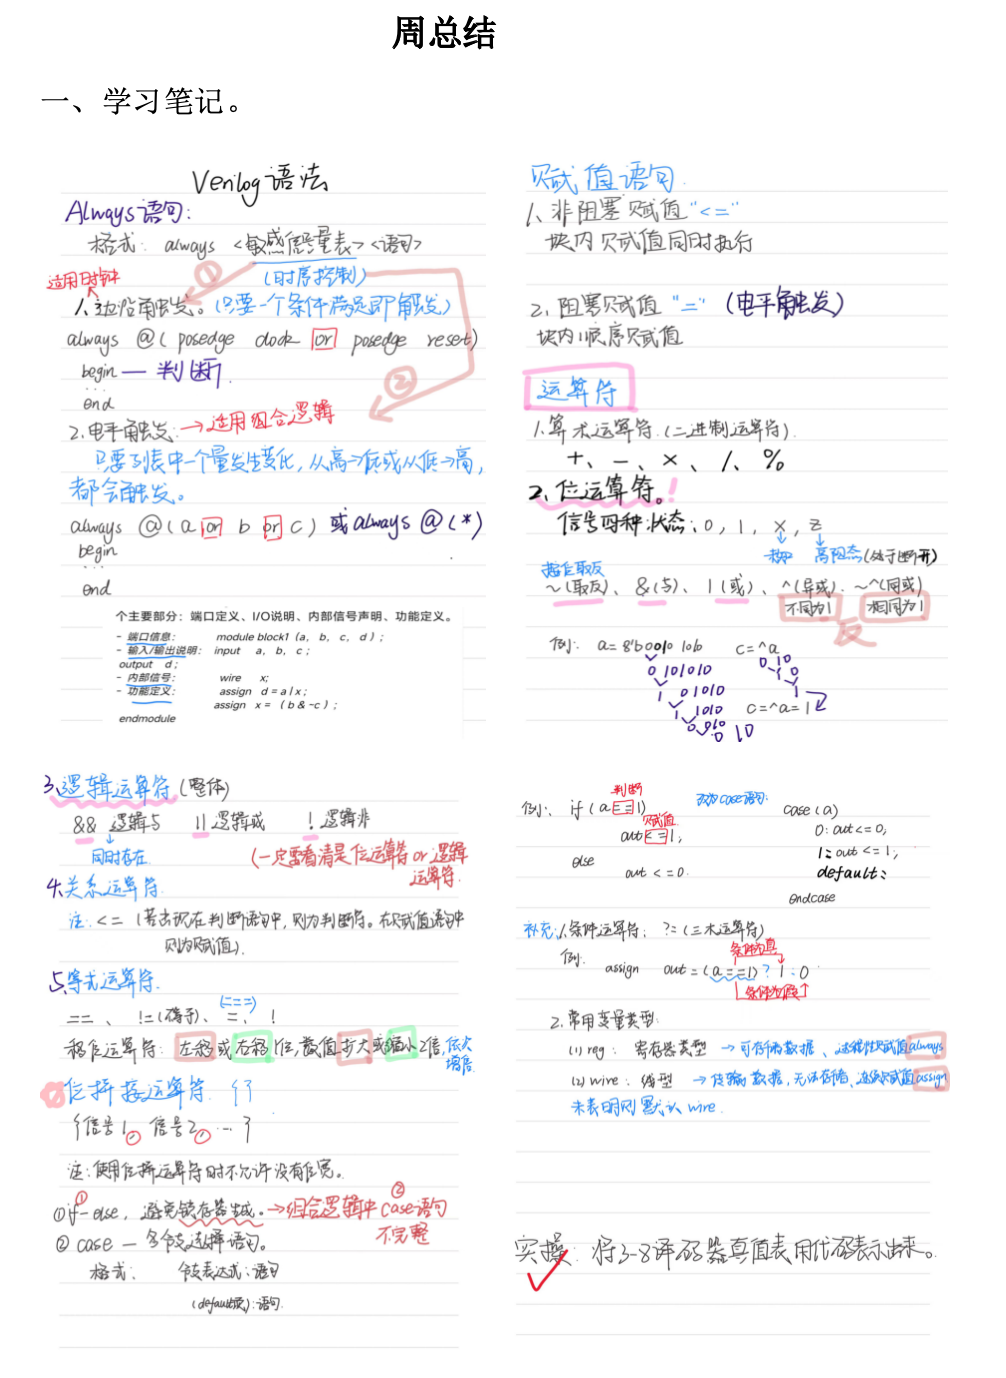 周总结
一、学习笔记。
Verilog语法
Always语句：
格式： always <敏感信号量表> <语句>
(时序控制)
①
适用时钟
1、边沿触发。(只要一个条件满足即触发)
always @( posedge clock or posedge reset)
begin — 判断.
...
end
②
2.电平触发：→适用组合逻辑
只要列表中一个量发生变化，从高→低或从低→高，
都会触发。
always @(a or b or c) 或always @(*)
begin
...
end
个主要部分：端口定义、I/O说明、内部信号声明、功能定义。
- 端口信息： module block1（a, b, c, d）;
- 输入/输出说明： input a, b, c ;
output d ;
- 内部信号： wire x;
- 功能定义： assign d = a | x ;
assign x = （ b & ~c ）;
endmodule
赋值语句
1、非阻塞赋值 "<="
块内赋值同时执行
2. 阻塞赋值 "=" (电平触发)
块内顺序赋值
运算符
1.算术运算符.(二进制运算符).
+、-、×、/、%
2、位运算符。!
信号四种状态：0, 1, x, z
高阻态(处于断开)
按位取反
~(取反)、&(与)、|(或)、^(异或). ~^(同或)
不同为1 相同为1
反
例： a= 8'b0010 10b c=^a
0 101010
1 01010
1 1010
c=^a=1
3、逻辑运算符 (整体)
&& 逻辑与 || 逻辑或 ! 逻辑非
同时存在
(一定要看清是位运算符 or 逻辑
运算符.
4.关系运算符
注：<= (若出现在判断语句中，则为判断符。在赋值语句中
则为赋值).
5、等式运算符.
(===)
== 、 !=(不等于)、 =、 !
移位运算符：左移或右移1位，数值扩大或缩小2倍,依次
增倍
位拼接运算符. { }
{信号1, 信号2, ... }
注：使用位拼运算符时不允许没有位宽。
①if-else, 避免锁存器生成。→组合逻辑中case语句
① ②
不完整
② case — 多分支选择语句。
格式： 分支表达式：语句
(default项):语句.
判断
例： if (a==1)
赋值
out<=1;
else
out <=0.
改为case语句：
case(a)
0: out<=0;
1: out<=1;
default:
endcase
补充：1.条件运算符： ?= (三木运算符)
条件为真
例. assign out=(a==1)? 1:0
条件为假
2. 常用变量类型:
(1) reg : 寄存器类型 →可存储数据、过程性赋值always
(2) wire : 线型 →传输数据, 无法存储、连续赋值assign
未表明则默认 wire.
实操：将3-8译码器真值表用代码表示出来。